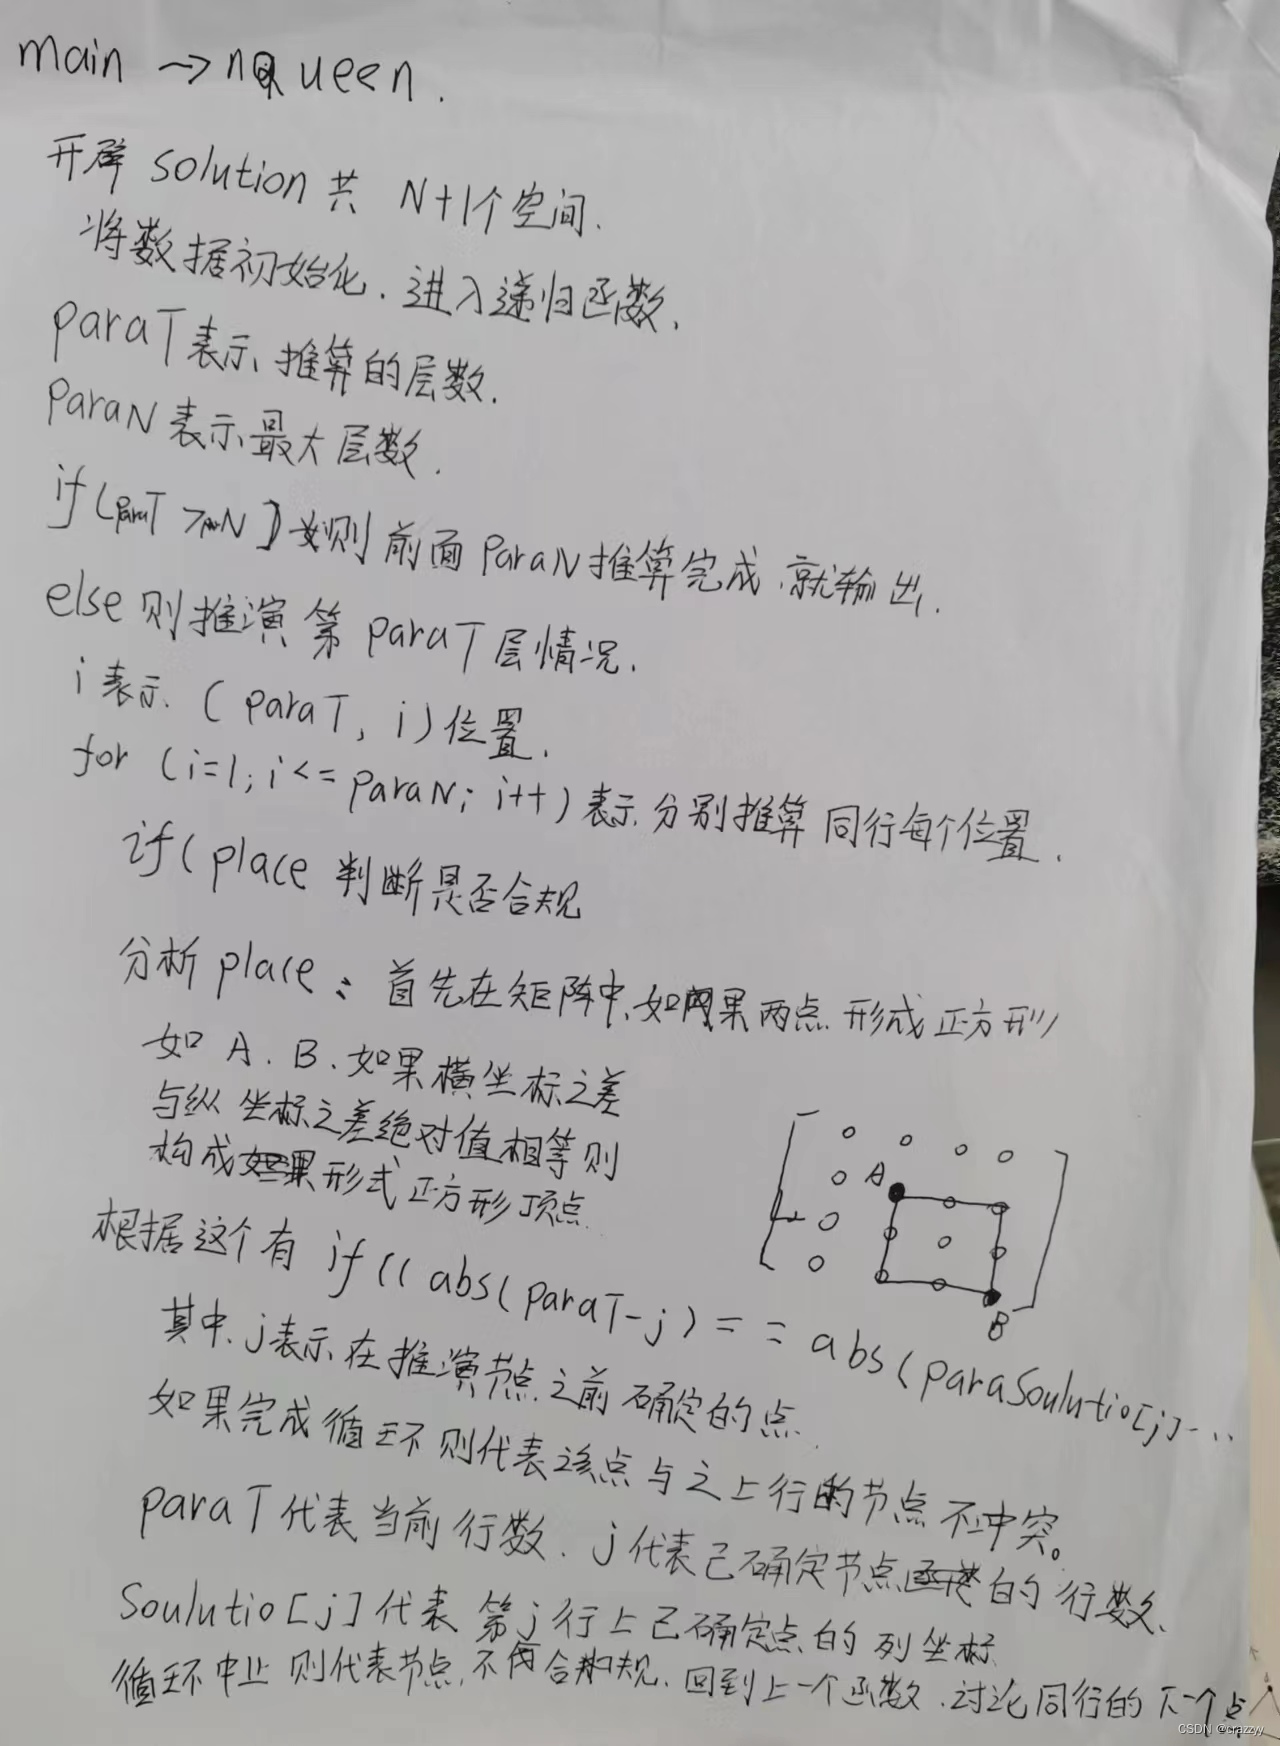 main → nQueen.
开辟 solution 共 N+1个空间.
将数据初始化.进入递归函数.
paraT表示推算的层数.
paraN表示最大层数.
if(paraT >paraN)则前面paraN推算完成.就输出.
else则推演第paraT层情况.
i表示.(paraT, i)位置.
for (i=1; i<=paraN; i++)表示分别推算同行每个位置.
if(place 判断是否合规
分析place: 首先在矩阵中,如果两点形成正方形
如 A. B. 如果横坐标之差
与纵坐标之差绝对值相等则
构成形式正方形顶点.
A
根据这个有 if((abs(paraT-j)==abs(paraSoulutio[j]-..
B
其中.j表示在推演节点之前确定的点.
如果完成循环则代表该点与之上行的节点不冲突。
paraT代表当前行数. j代表已确定节点的行数.
Soulutio[j]代表第j行上已确定点的列坐标
循环中止则代表节点不合规.回到上一个函数.讨论同行的下一个点
CSDN @crazzyy